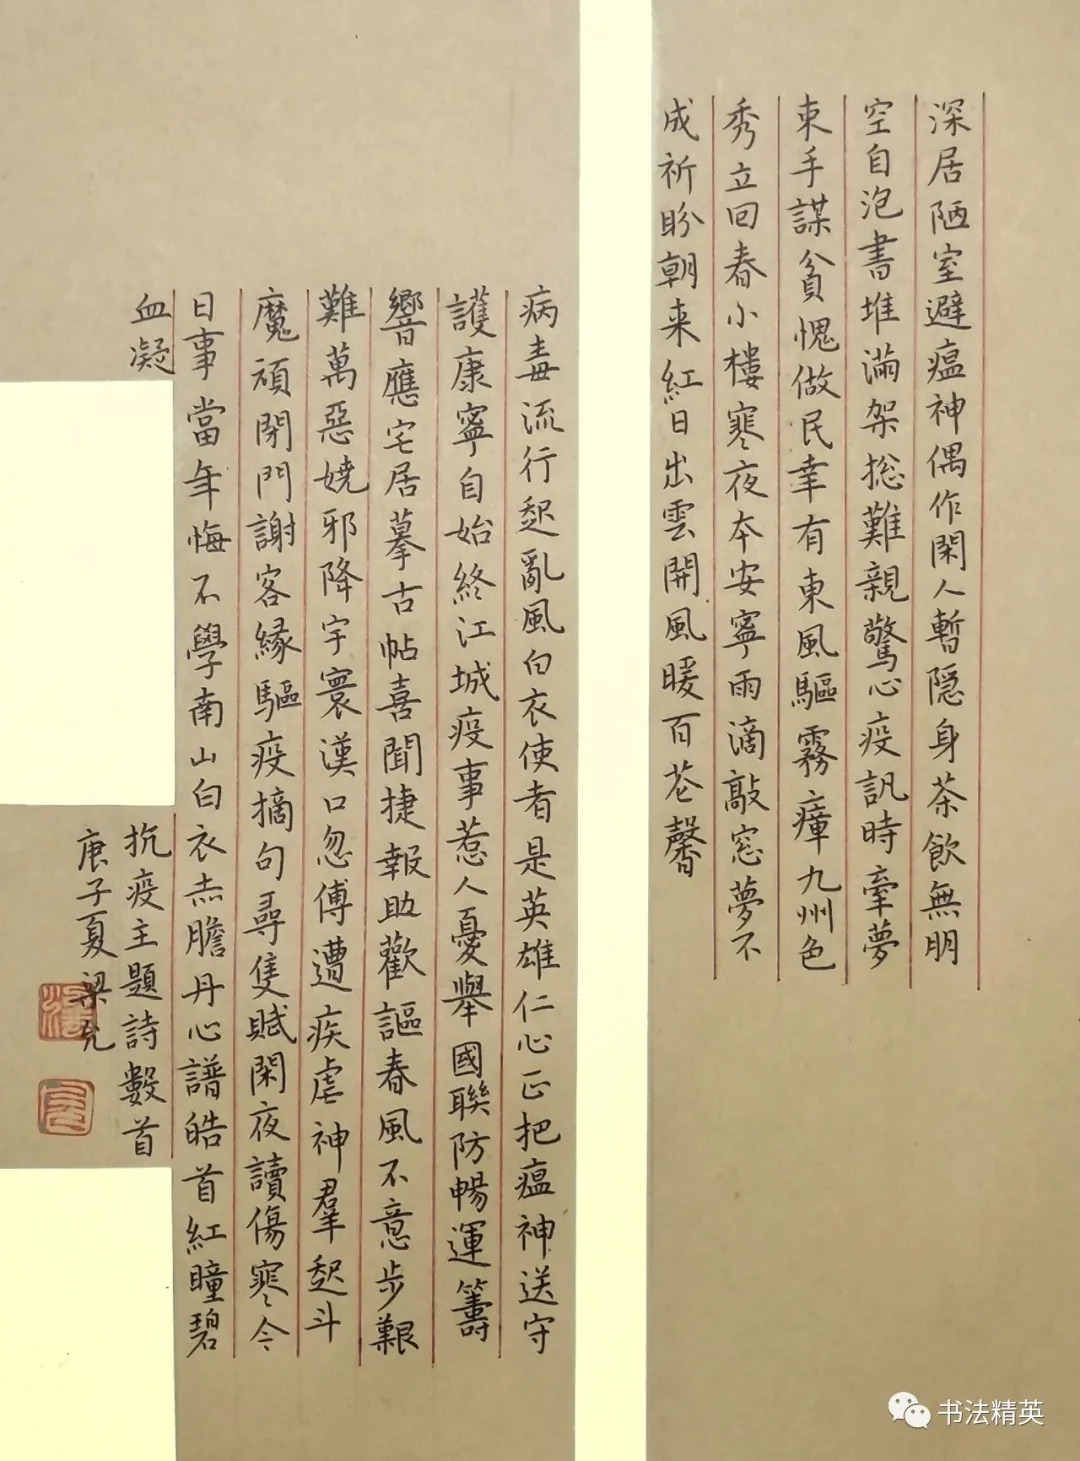 深居陋室避瘟神偶作閑人暫隠身茶飲無朋
空自泡書堆滿架総難親驚心疫訊時牽夢
束手謀貧愧做民幸有東風驅霧瘴九州色
秀立回春小樓寒夜本安寧雨滴敲窓夢不
成祈盼朝来紅日出雲開風暖百花馨
病毒流行起亂風白衣使者是英雄仁心正把瘟神送守
護康寧自始終江城疫事惹人憂舉國聯防暢運籌
響應宅居摹古帖喜聞捷報助歡謳春風不意步艱
難萬惡嬈邪降宇寰漢口忽傳遭疾虐神羣起斗
魔頑閉門謝客緣驅疫摘句尋隻賦閑夜讀傷寒今
日事當年悔不學南山白衣赤膽丹心譜皓首紅瞳碧
血凝
抗疫主題詩數首
庚子夏梁允
书法精英